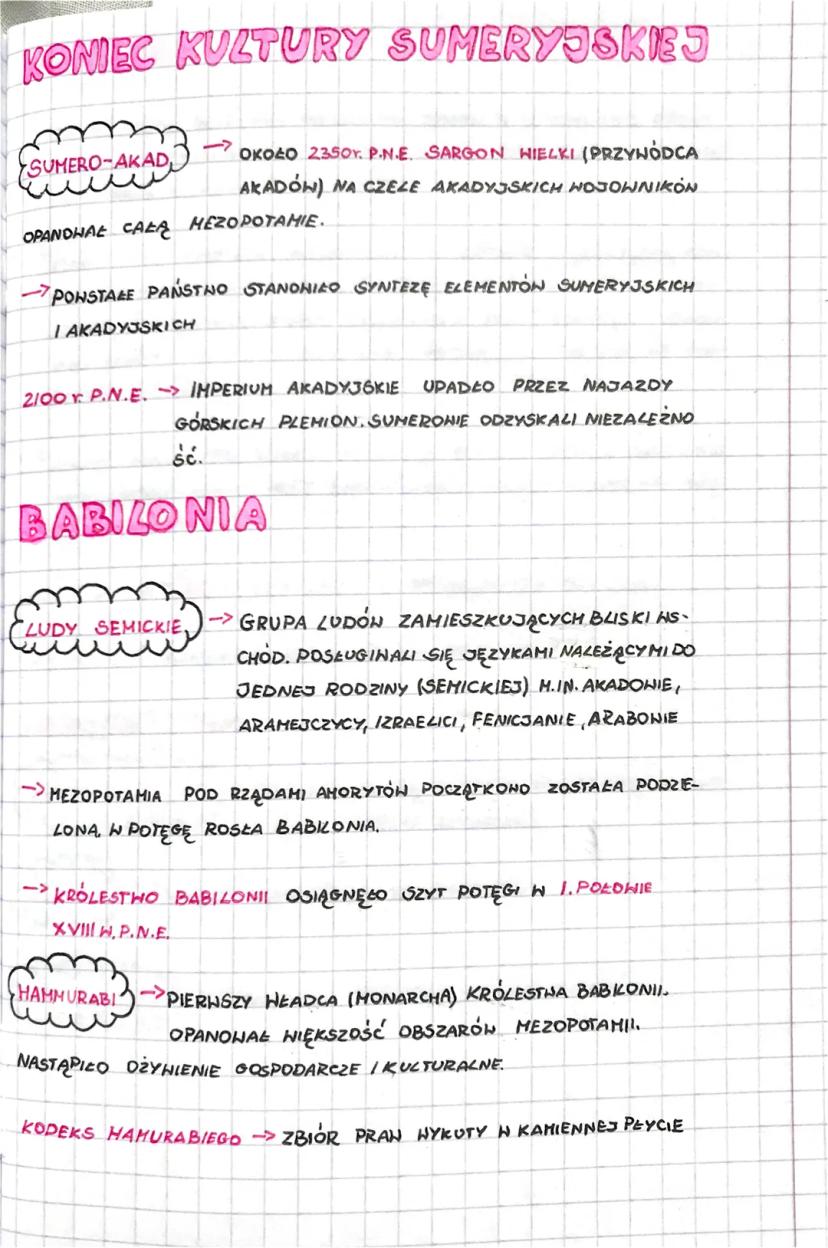 KONIEC KULTURY SUMERYJSKIEJ
SUMERO-AKAD, → OKOŁO 2350r. P.N.E. SARGON WIELKI (PRZYWÓDCA
AKADÓW) NA CZELE AKADYJSKICH WOJOWNIKÓW
OPANOWAŁ CAŁĄ MEZOPOTAMIE.
→ POWSTAŁE PAŃSTWO STANOWIŁO SYNTEZĘ ELEMENTÓW SUMERYJSKICH
I AKADYJSKICH
2100 r. P.N.E. → IMPERIUM AKADYJSKIE UPADŁO PRZEZ NAJAZDY
GÓRSKICH PLEMION. SUMEROWIE ODZYSKALI NIEZALEŻNO
ŚĆ.
BABILONIA
LUDY SEMICKIE → GRUPA LUDÓW ZAMIESZKUJĄCYCH BLISKI WS-
CHÓD. POSŁUGIWALI SIĘ JĘZYKAMI NALEŻĄCYMI DO
JEDNEJ RODZINY (SEMICKIEJ) M.IN. AKADOWIE,
ARAMEJCZYCY, IZRAELICI, FENICJANIE, ARABOWIE
→ MEZOPOTAMIA POD RZĄDAMI AMORYTÓW POCZĄTKOWO ZOSTAŁA PODZE-
LONA, W POTĘGĘ ROSŁA BABILONIA.
→ KRÓLESTWO BABILONII OSIĄGNĘŁO SZYT POTĘGI W I. POŁOWIE
XVIII W. P.N.E.
HAMMURABI → PIERWSZY WŁADCA (MONARCHA) KRÓLESTWA BABILONII.
OPANOWAŁ WIĘKSZOŚĆ OBSZARÓW MEZOPOTAMII.
NASTĄPIŁO OŻYWIENIE GOSPODARCZE I KULTURALNE.
KODEKS HAMURABIEGO → ZBIÓR PRAW WYKUTY W KAMIENNEJ PŁYCIE